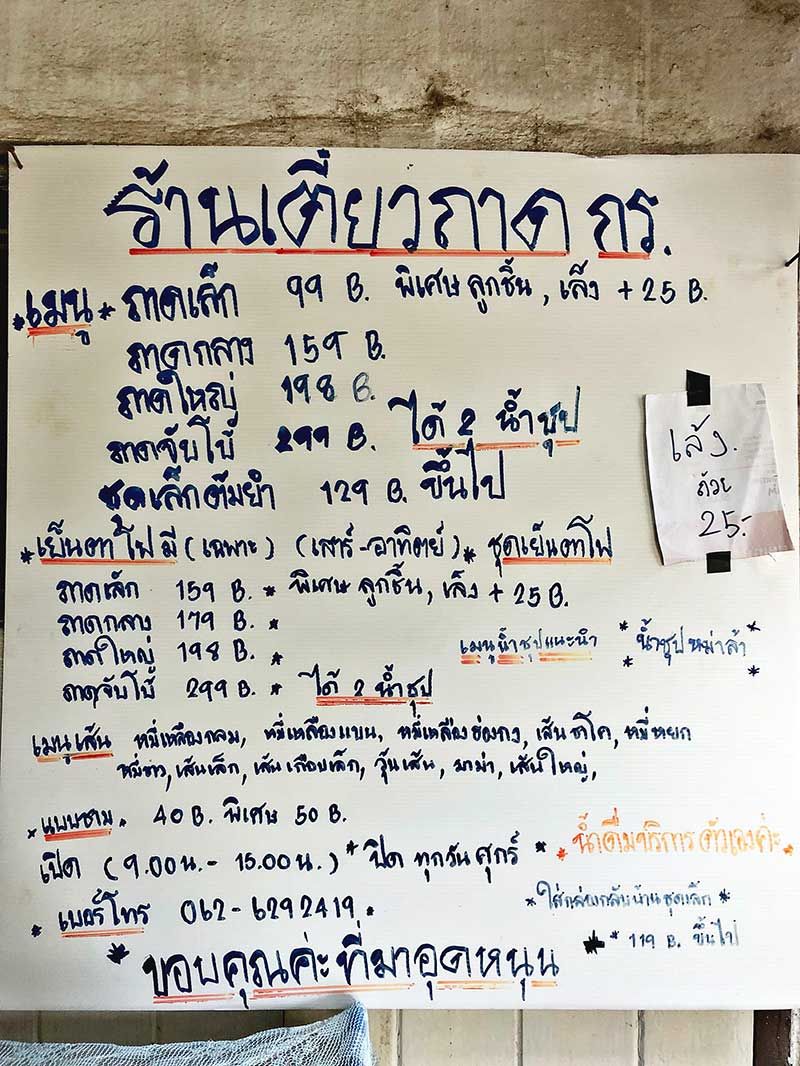 ร้านเตี๋ยวถาด กร.
*เมนู* ถาดเล็ก 99 B. พิเศษ ลูกชิ้น, เล้ง + 25 B.
ถาดกลาง 159 B.
ถาดใหญ่ 198 B.
ถาดจัมโบ้ 299 B. ได้ 2 น้ำซุป
ชุดเล็กต้มยำ 129 B. ขึ้นไป
เล้ง.
ถ้วย
25.-
*เย็นตาโฟ มี (เฉพาะ) (เสาร์-อาทิตย์)* ชุดเย็นตาโฟ
ถาดเล็ก 159 B. * พิเศษ ลูกชิ้น, เล้ง + 25 B.
ถาดกลาง 179 B. *
ถาดใหญ่ 198 B. *
ถาดจัมโบ้ 299 B. * ได้ 2 น้ำซุป
เมนูน้ำซุปแนะนำ * น้ำซุปหม่าล่า *
เมนูเส้น หมี่เหลืองกลม, หมี่เหลืองแบน, หมี่เหลืองฮ่องกง, เส้นชาโค, หมี่หยก
หมี่ขาว, เส้นเล็ก, เส้นเกือบเล็ก, วุ้นเส้น, มาม่า, เส้นใหญ่,
*แบบชาม* 40 B. พิเศษ 50 B.
เปิด (9.00น.- 15.00น.) * ปิด ทุกวันศุกร์ *
* น้ำดื่มบริการตัวเองค่ะ *
* เบอร์โทร 062-6292419 *
* ใส่กล่องกลับบ้านชุดเล็ก *
* 119 B. ขึ้นไป
* ขอบคุณค่ะที่มาอุดหนุน